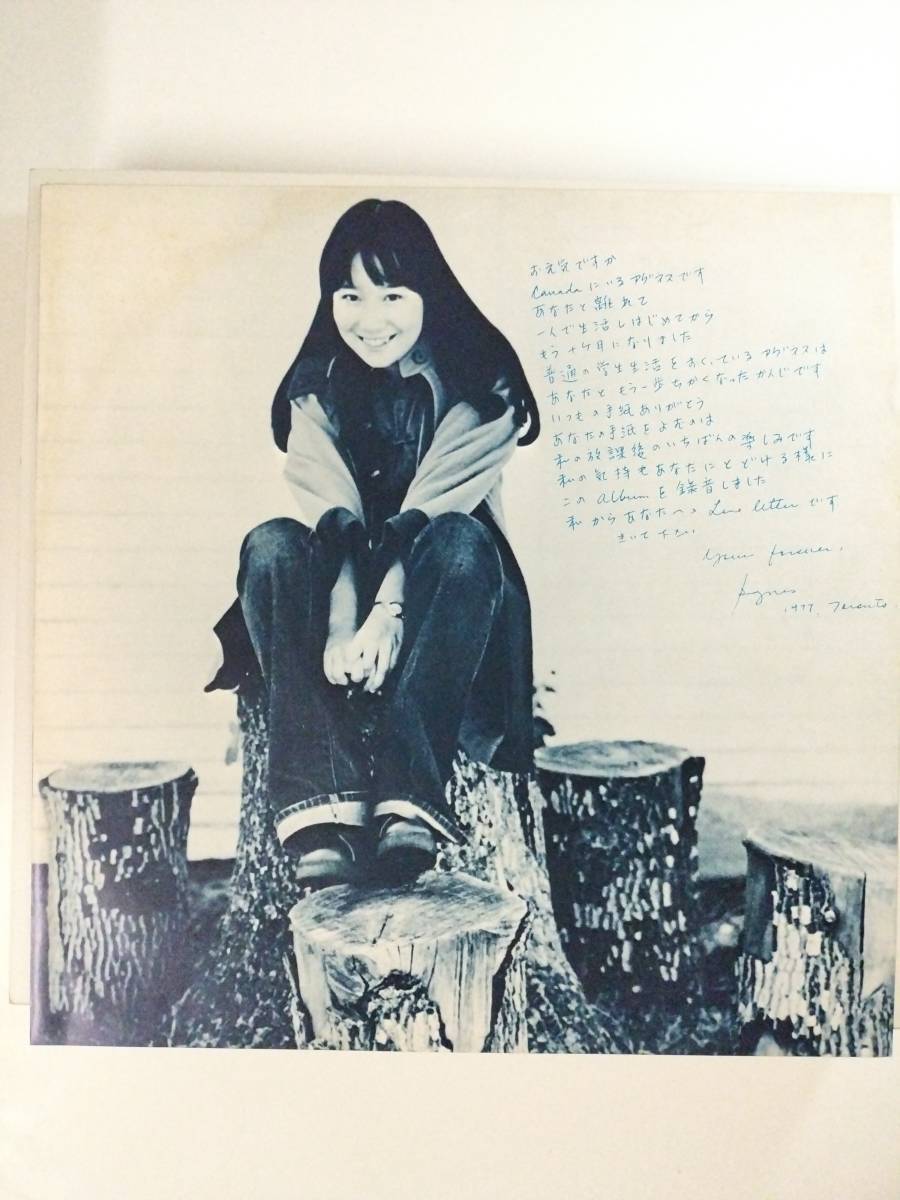 お元気ですか
Canada にいるアグネスです
あなたと離れて
一人で生活しはじめてから
もう十ヶ月になりました
普通の学生生活をおくっているアグネスは
あなたと もう一歩ちかくなったかんじです
いつもの手紙ありがとう
あなたの手紙をよむのは
私の放課後のいちばんの楽しみです
私の気持もあなたにとどける様に
この album を録音しました
私からあなたへの Love letter です
きいて下さい
Yours forever,
Agnes
1977, Toronto.